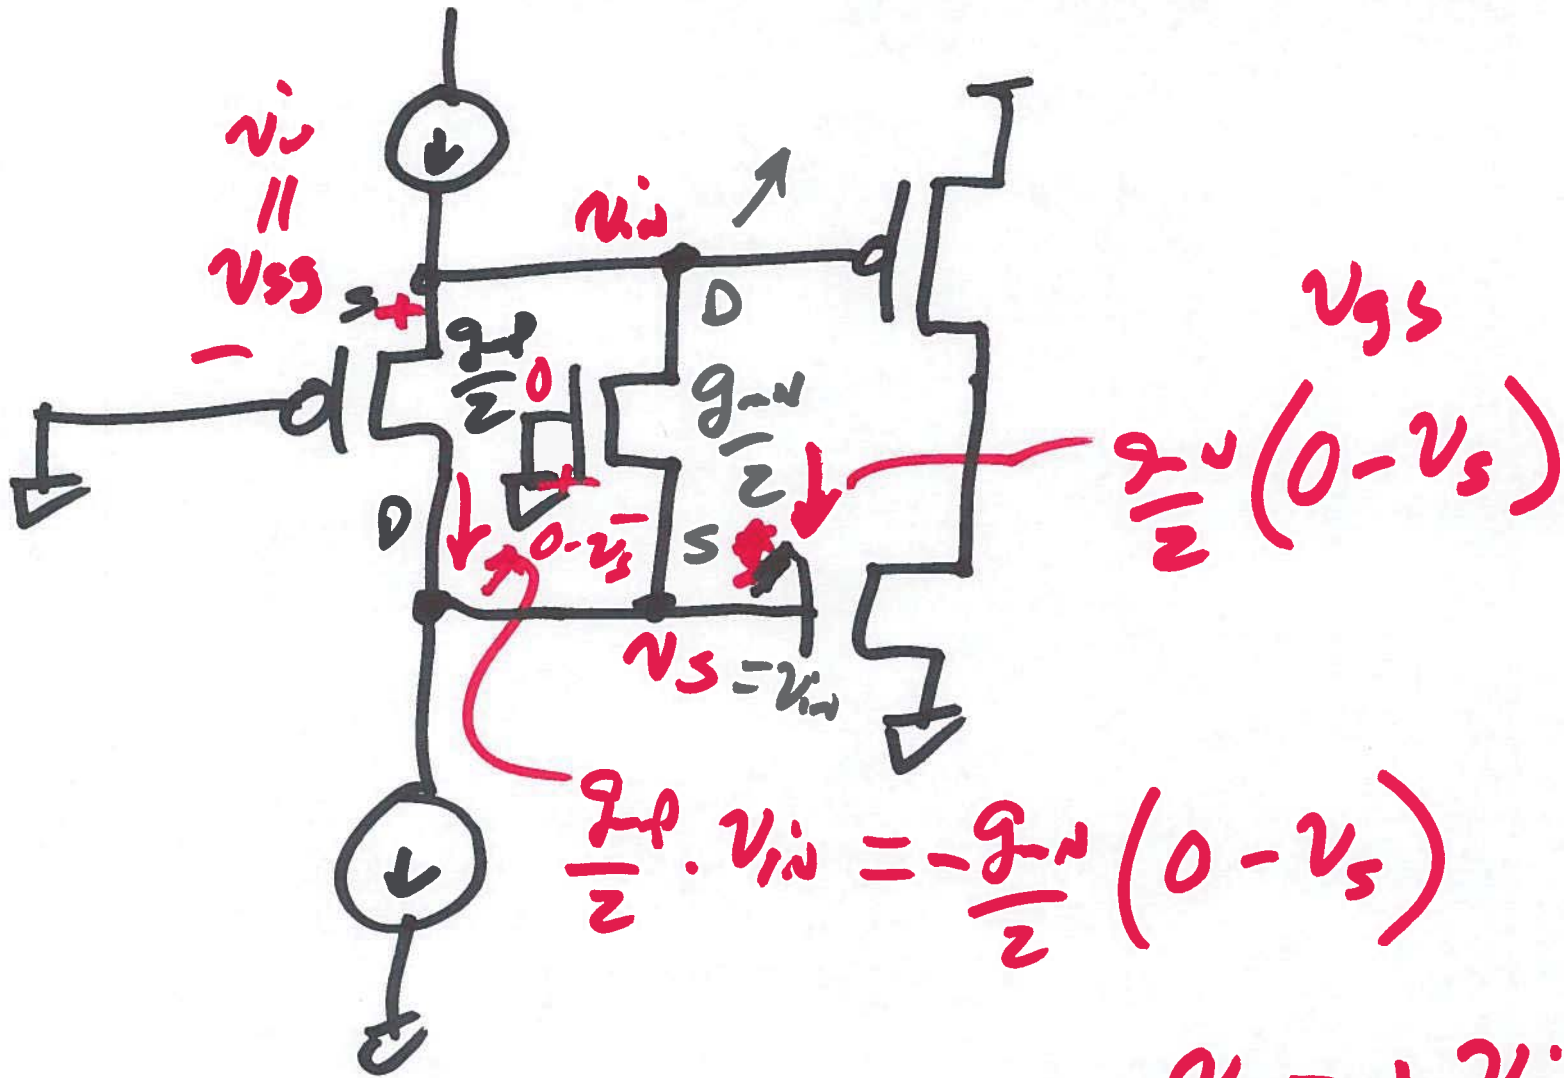 vin
||
vsg
vin
S +
−
gmp/2
0
D
gmN/2
vgs
gmN/2 (0 - vs)
+
D
0 - vs
−
S
vs = vin
gmp/2 . vin = -gmN/2 (0 - vs)